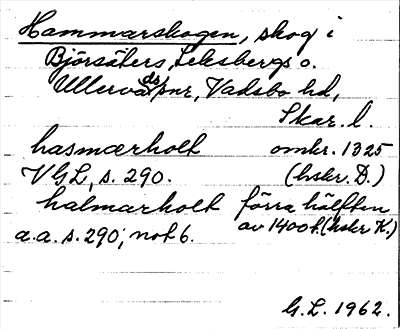 Hammarskogen, skog i
Björsäters, Leksbergs o.
Ullervads snr, Vadsbo hd,
Skar. l.
hasmærholt omkr. 1325
VGL, s. 290. (hskr. D.)
halmarholt förra hälften
a.a. s. 290, not 6. av 1400t. (hskr K.)
G.L. 1962.